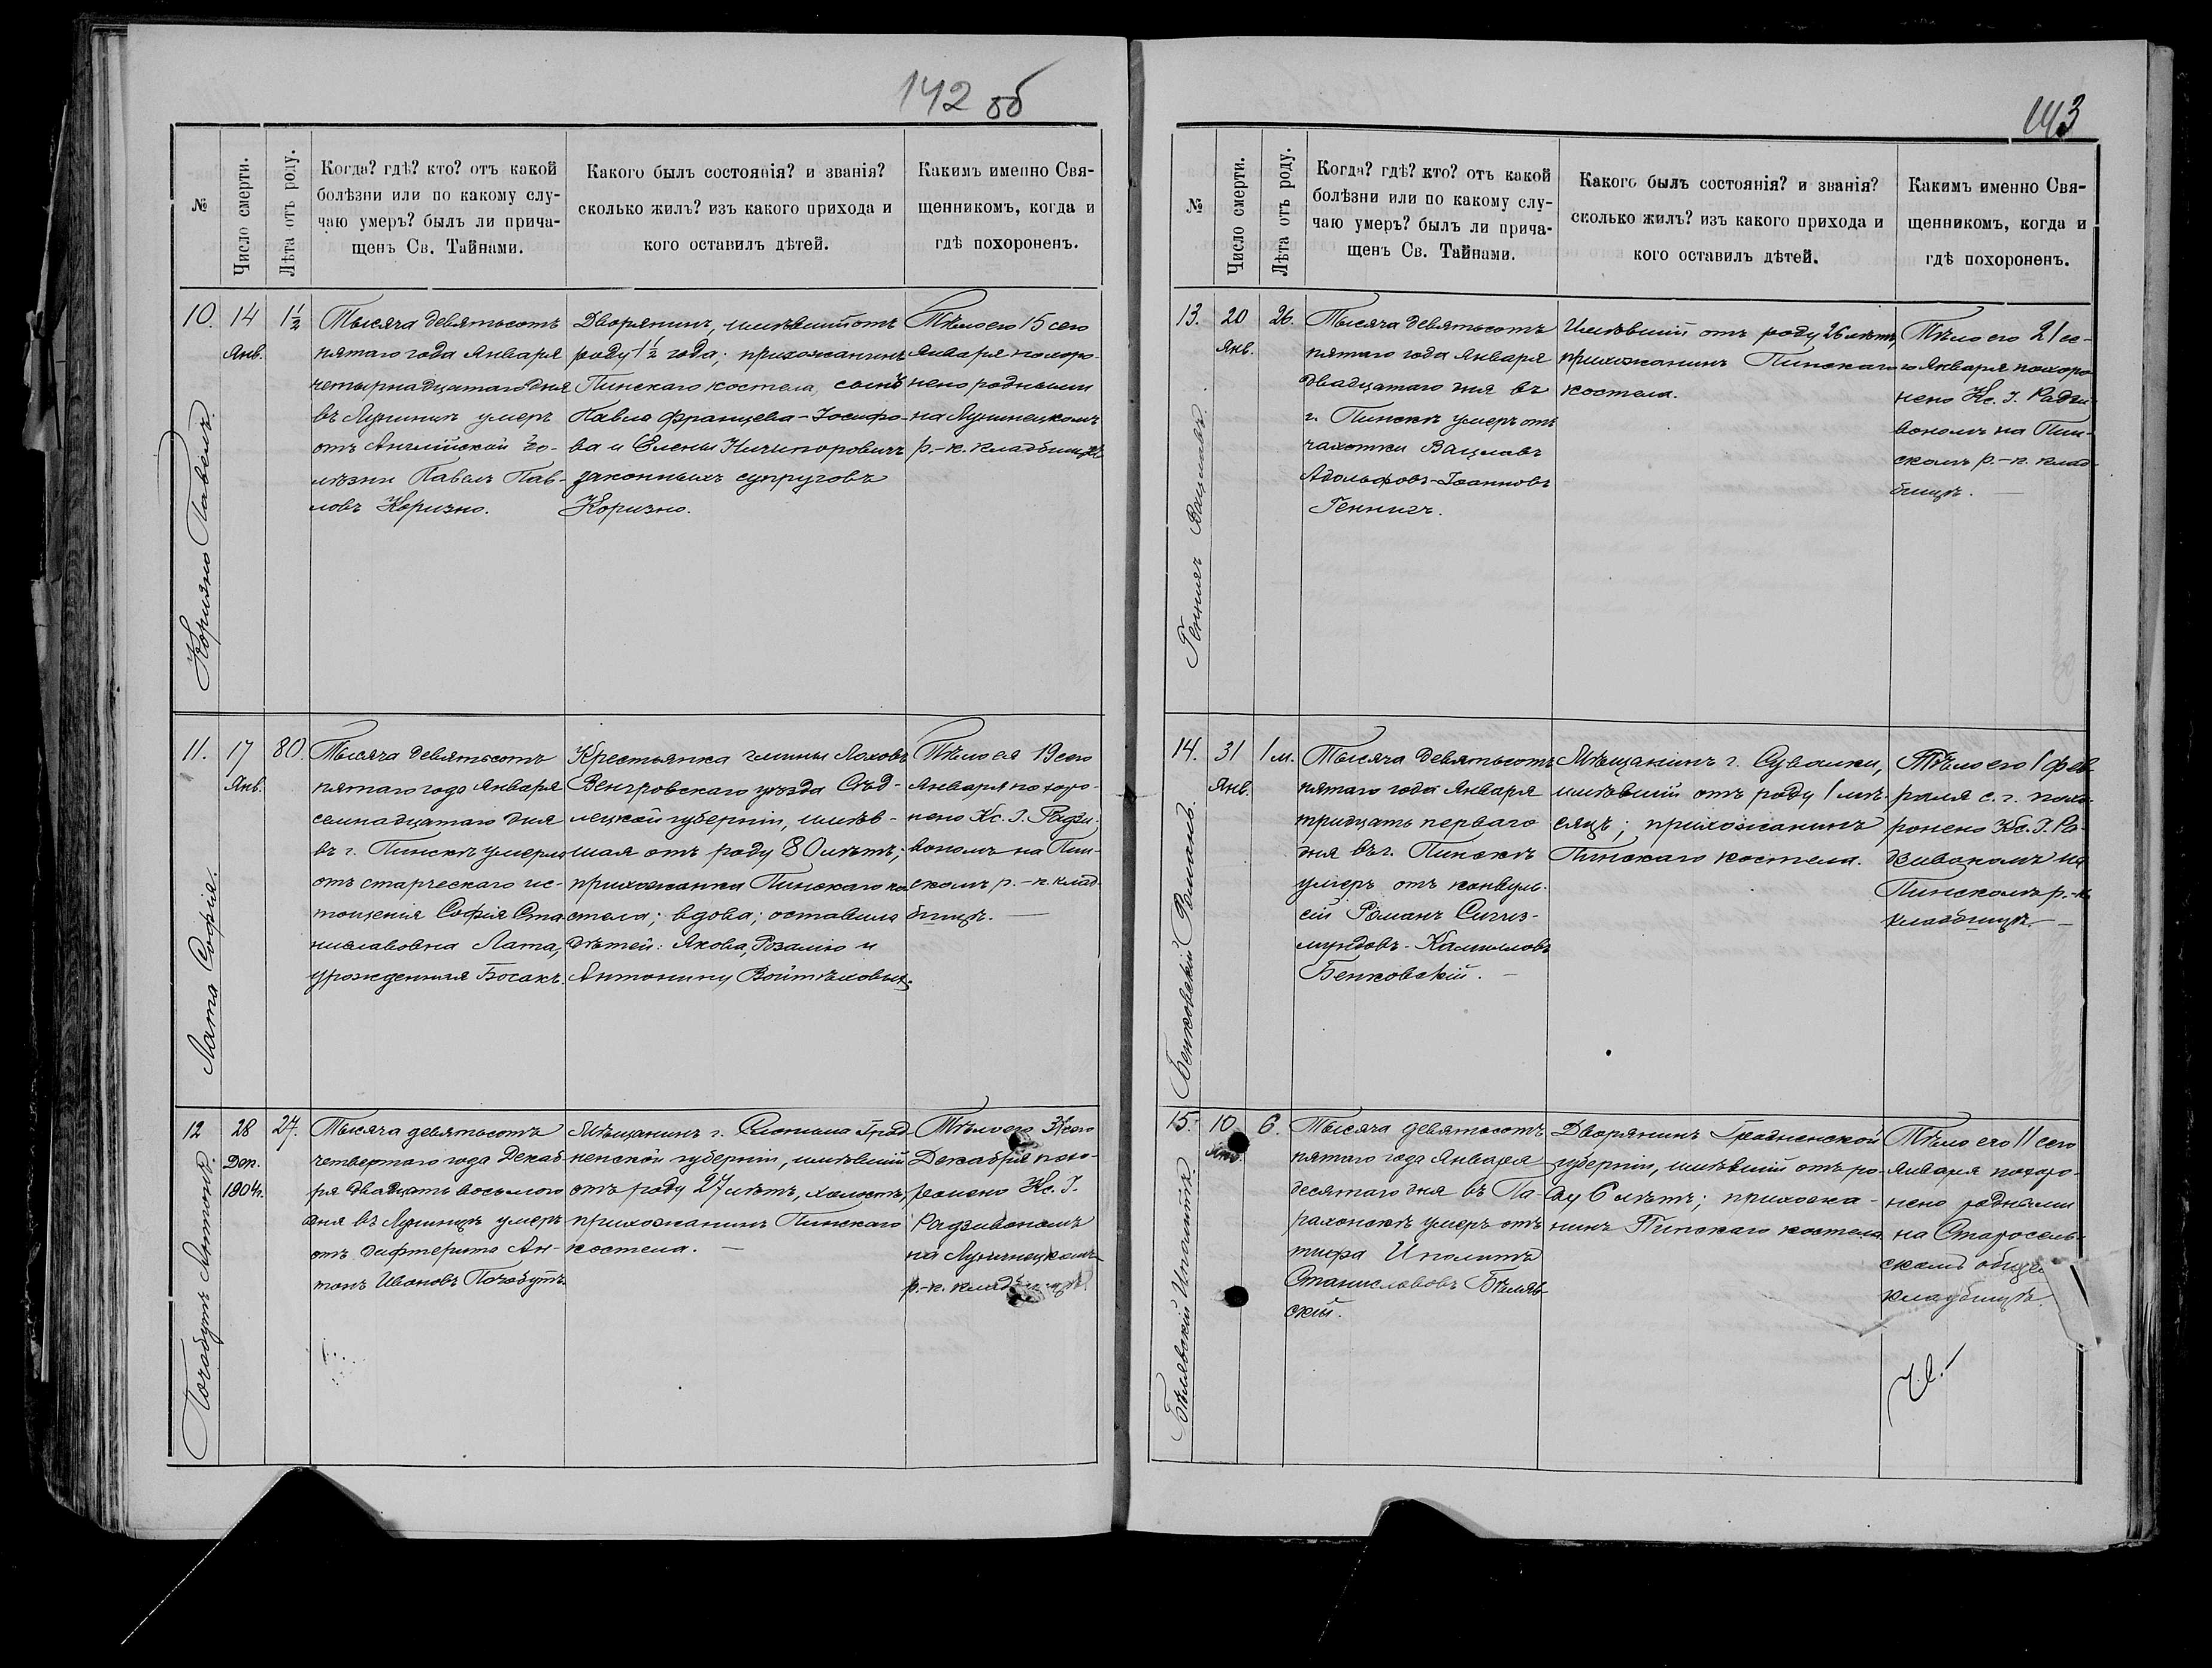 142 об
№
Число смерти.
Лѣта отъ роду.
Когда? гдѣ? кто? отъ какой
болѣзни или по какому слу-
чаю умеръ? былъ ли прича-
щенъ Св. Тайнами.
Какого былъ состоянія? и званія?
сколько жилъ? изъ какого прихода и
кого оставилъ дѣтей.
Какимъ именно Свя-
щенникомъ, когда и
гдѣ похороненъ.
10.
Коризно Павелъ.
14
Янв.
1½
Тысяча девятьсотъ
пятаго года Января
четырнадцатаго дня
въ Лунинцѣ умеръ
отъ Англійской бо-
лѣзни Павелъ Пав-
ловъ Коризно.
Дворянинъ, имѣвшій отъ
роду 1½ года; прихожанинъ
Пинскаго костела, сынъ
Павла Францева-Іосифо-
ва и Елены Ничипоровичъ
законныхъ супруговъ
Коризно.
Тѣло его 15 сего
Января похоро-
нено родными
на Лунинецкомъ
р.-к. кладбищѣ
11.
Лата Софія.
17
Янв.
80.
Тысяча девятьсотъ
пятаго года Января
семнадцатаго дня
въ г. Пинскѣ умерла
отъ старческаго ис-
тощенія Софія Ста
ниславовна Лата,
урожденная Босакъ.
Крестьянка гмины Лоховъ
Венгровскаго уѣзда Сѣд-
лецкой губерніи, имѣв-
шая отъ роду 80 лѣтъ;
прихожанка Пинскаго ко
стела; вдова; оставила
дѣтей: Якова, Розалію и
Антонину Войтѣховых.
Тѣло ея 19 сего
Января похоро-
нено Кс. І. Радзи-
вономъ на Пин-
скомъ р.-к. клад-
бищѣ. —
12
Почобутъ Антонъ.
28
Дек.
1904г.
27.
Тысяча девятьсотъ
четвертаго года Декаб-
ря двадцать восьмого
дня въ Лунинцѣ умеръ
отъ дифтерита Ан-
тонъ Ивановъ Почобутъ.
Мѣщанинъ г. Слонима Грод-
ненской губерніи, имѣвшій
отъ роду 27 лѣтъ, холостъ;
прихожанинъ Пинскаго
костела. —
Тѣло его 31 сего
Декабря похо-
ронено Кс. І.
Радзивономъ
на Лунинецкомъ
р.-к. кладбищѣ
143
№
Число смерти.
Лѣта отъ роду.
Когда? гдѣ? кто? отъ какой
болѣзни или по какому слу-
чаю умеръ? былъ ли прича-
щенъ Св. Тайнами.
Какого былъ состоянія? и званія?
сколько жилъ? изъ какого прихода и
кого оставилъ дѣтей.
Какимъ именно Свя-
щенникомъ, когда и
гдѣ похороненъ.
13.
Геннигъ Вацлавъ.
20
Янв.
26.
Тысяча девятьсотъ
пятаго года Января
двадцатаго дня въ
г. Пинскѣ умеръ отъ
чахотки Вацлавъ
Адольфовъ-Іоанновъ
Геннигъ.
Имѣвшій отъ роду 26 лѣтъ,
прихожанинъ Пинскаго
костела.
Тѣло его 21 се-
го Января похоро
нено Кс. І. Радзи-
вономъ на Пин-
скомъ р.-к. клад-
бищѣ. —
14.
Бенковскій Романъ.
31
Янв.
1 м.
Тысяча девятьсотъ
пятаго года Января
тридцать перваго
дня въ г. Пинскѣ
умеръ отъ конвуль-
сій Романъ Сигиз-
мундовъ-Камилловъ
Бенковскій. —
Мѣщанинъ г. Сувалки,
имѣвшій отъ роду 1 мѣ-
сяцъ; прихожанинъ
Пинскаго костела.
Тѣло его 1 фев
раля с. г. похо-
ронено Кс. І. Ра-
дзивономъ на
Пинскомъ р.-к.
кладбищѣ. —
15.
Бѣлявскій Иполитъ.
10
Янв.
6.
Тысяча девятьсотъ
пятаго года Января
десятаго дня въ Па-
рахонскѣ умеръ отъ
тифа Иполитъ
Станиславовъ Бѣляв-
скій.
Дворянинъ Гродненской
губерніи, имѣвшій отъ ро-
ду 6 лѣтъ; прихожа-
нинъ Пинскаго костела
Тѣло его 11 сего
Января похоро-
нено родными
на Старосель-
скомъ общем
кладбищѣ.